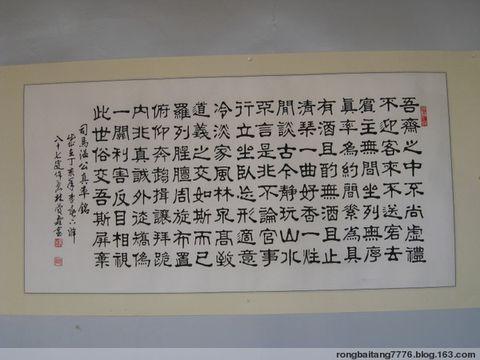 吾齋之中不尚虛禮
不迎客來不送客去
賓主無間坐列無序
真率為約簡素為具
有酒且酌無酒且止
清琴一曲好香一炷
閒談古今靜玩山水
不言是非不論官事
行立坐臥忘形適意
冷淡家風林泉高致
道義之交如斯而已
羅列腥膻周旋布置
俯仰奔趨揖讓拜跪
內非真誠外徒矯偽
一關利害反目相視
此世俗交吾斯屏棄
司馬溫公真率銘
丁亥年季
八十七叟 書
rongbaitang7776.blog.163.com